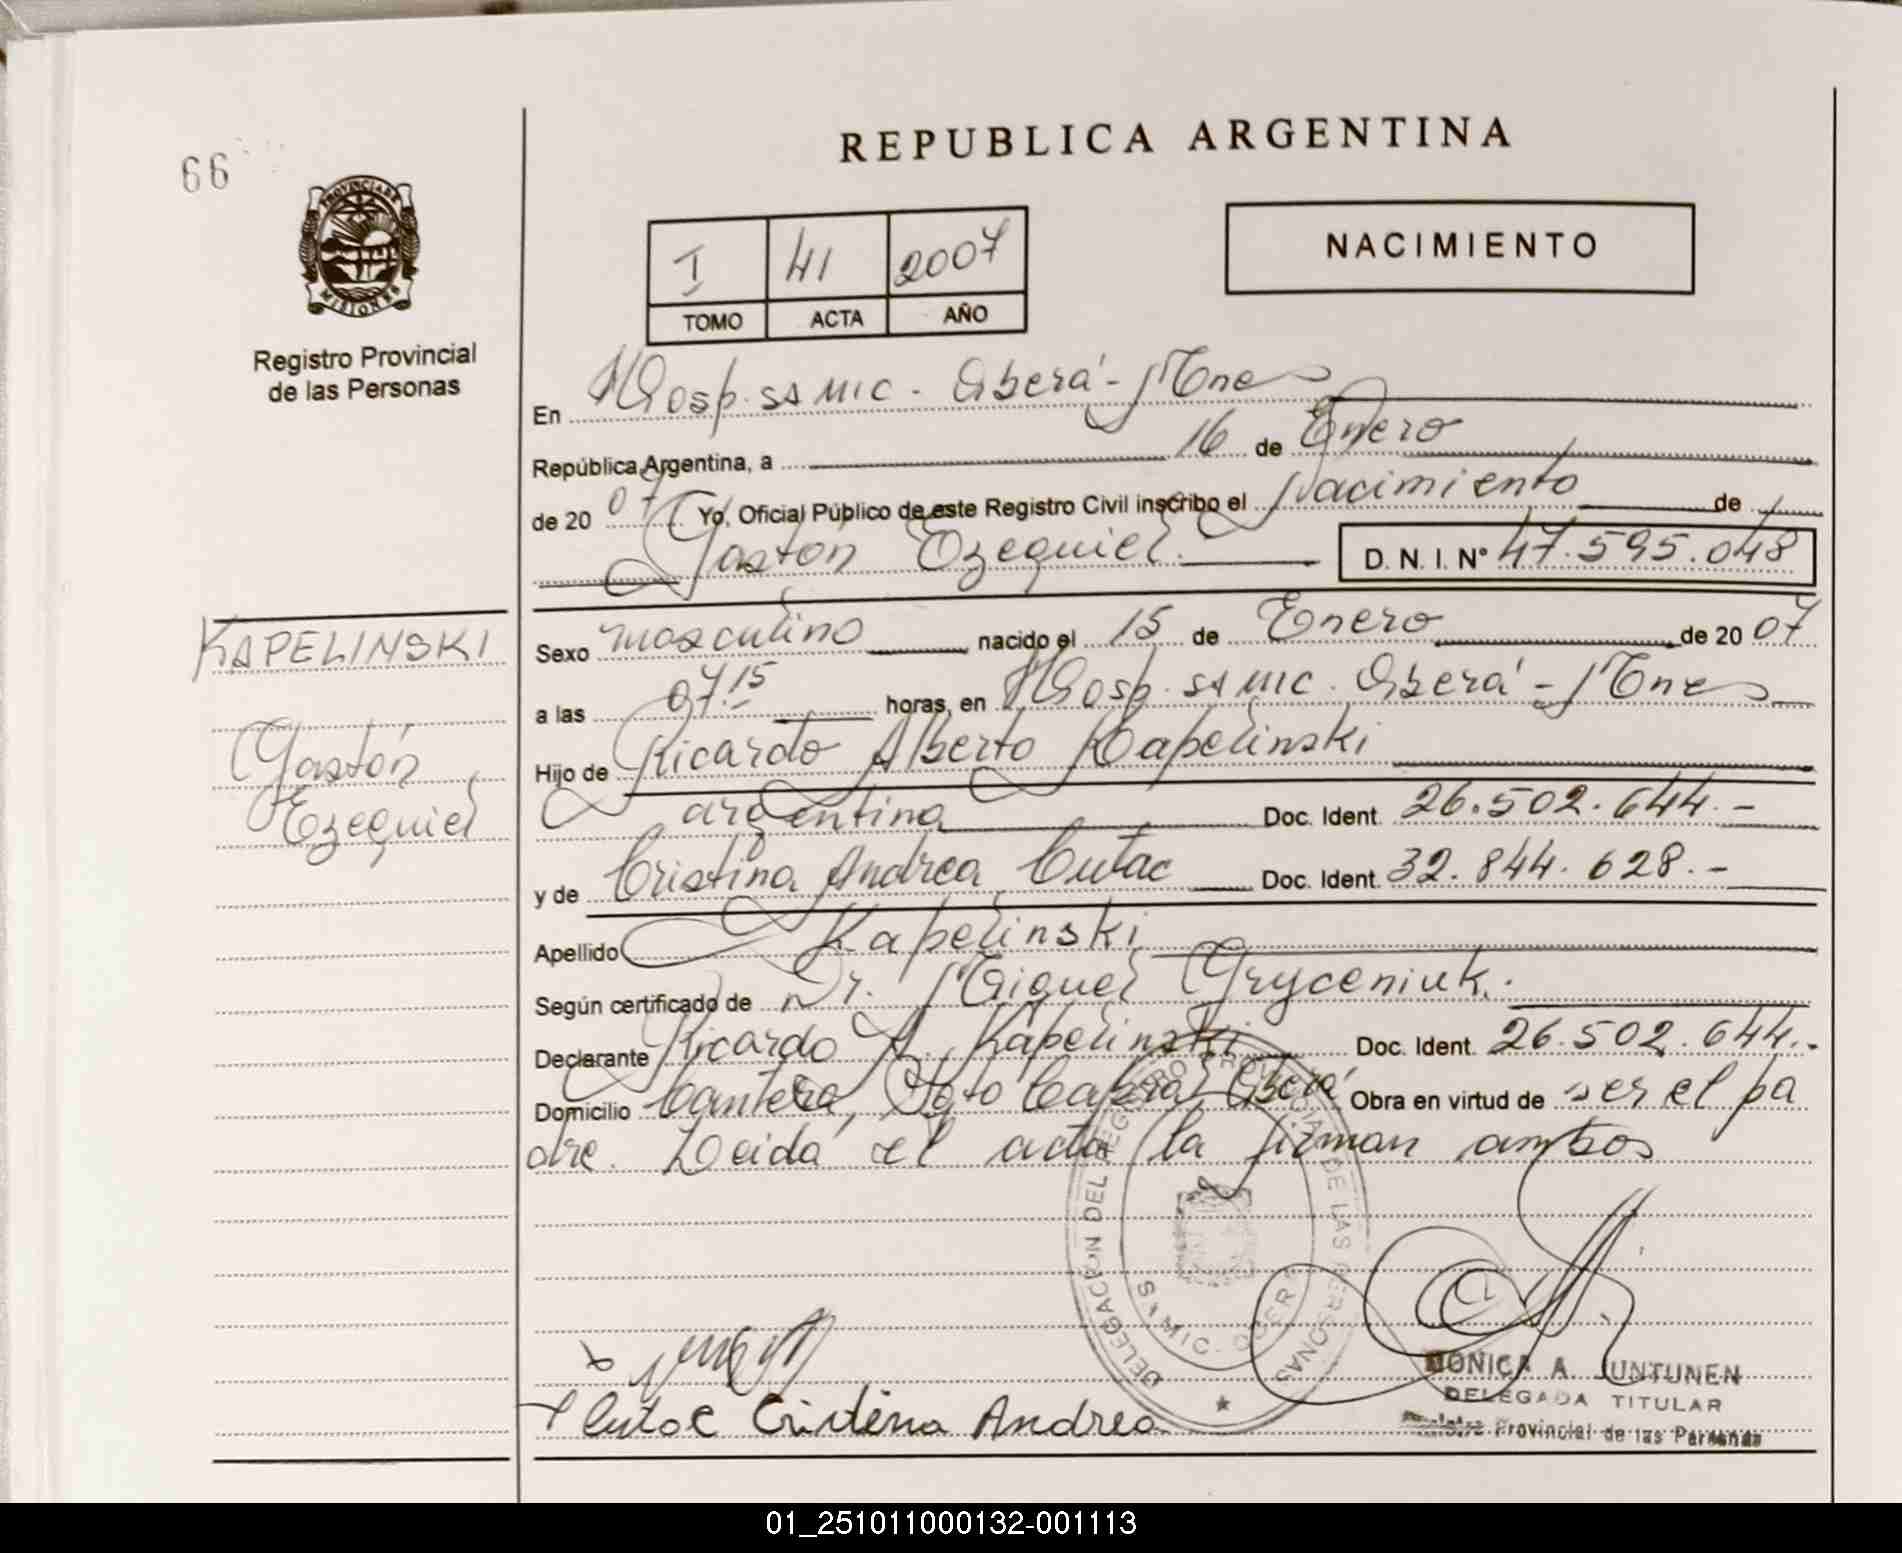 66
REPUBLICA ARGENTINA
PROVINCIA DE
MISIONES
Registro Provincial
de las Personas
I 41 2007
TOMO ACTA AÑO
NACIMIENTO
En Hosp. SAMIC. Oberá - Mnes
República Argentina, a 16 de Enero
de 2007 Yo, Oficial Público de este Registro Civil inscribo el Nacimiento de
Gastón Ezequiel. D. N. I. N° 47.595.048
KAPELINSKI
Gastón
Ezequiel
Sexo masculino nacido el 15 de Enero de 2007
a las 07.15 horas, en Hosp. SAMIC. Oberá - Mnes
Hijo de Ricardo Alberto Kapelinski
argentina Doc. Ident. 26.502.644.-
y de Cristina Andrea Cutac Doc. Ident. 32.844.628.-
Apellido Kapelinski
Según certificado de Dr. Miguel Gryceniuk.
Declarante Ricardo A. Kapelinski Doc. Ident. 26.502.644.-
Domicilio Cantera, Sgto Cabral Oberá Obra en virtud de ser el pa
dre. Leida el acta la firman ambos
DELEGACIÓN DEL REGISTRO PROVINCIAL DE LAS PERSONAS
Cutac Cristina Andrea
MONICA A. JUNTUNEN
DELEGADA TITULAR
Registro Provincial de las Personas
01_251011000132-001113